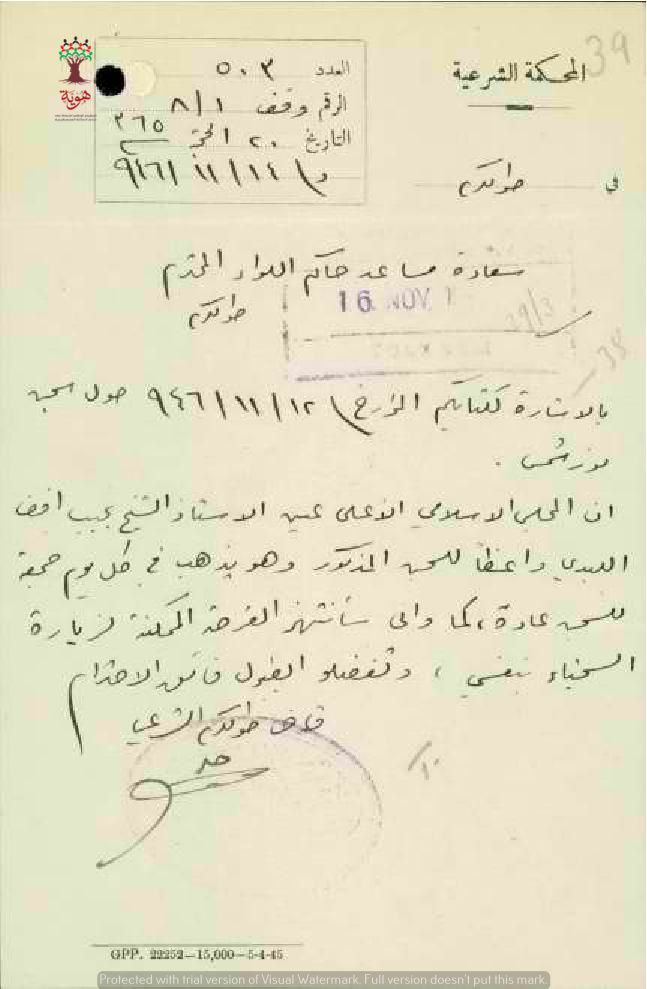 39
المحكمة الشرعية
في طولكرم
هوية
العدد ٥٠٣
الرقم وقف ٨/١
التاريخ ٢٠ الحجة ٣٦٥
و ١٤/١١/٩٤٦
سعادة مساعد حاكم اللواء المحترم
طولكرم
16 NOV 1
29/3
38
بالاشارة لكتابكم المؤرخ ١٢/١١/٩٤٦ حول سجن
نور شمس .
ان المجلس الاسلامي الاعلى عين الاستاذ الشيخ نجيب افندي
اللبدي واعظاً للسجن المذكور وهو يذهب في كل يوم جمعة
للسجن عادة، كما واني سأنتهز الفرصة الممكنة لزيارة
السجناء بنفسي ، وتفضلو بقبول فائق الاحترام
قاضي طولكرم الشرعي
GPP. 22252—15,000—5-4-45
Protected with trial version of Visual Watermark. Full version doesn't put this mark.